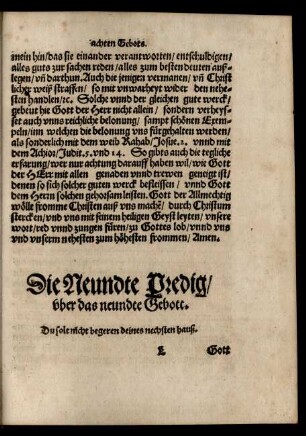 achten Gebots.
mein hin/das sie einander verantworten/entschuldigen/
alles guts zur sachen reden/alles zum besten deuten auß-
legen/vñ darthun. Auch die jenigen vermanen/vñ Christ
licher weiß straffen/so mit vnwarheyt wider den nehe-
sten handlen/ꝛc. Solche vnnd der gleichen gute werck/
gebeut hie Gott der Herr nicht allein/sondern verheys-
set auch vnns reichliche belonung/sampt schönen Exem-
peln/inn welchen die belonung vns fürgehalten werden/
als sonderlich mit dem weib Rahab/Josue.2. vnnd mit
dem Achior/Judit.5. vnd 14. So gibts auch die tegliche
erfarung/wer nur achtung darauff haben wil/wie Gott
der HErr mit allen genaden vnnd trewen geneigt ist/
denen so sich solcher guten werck befleissen/vnnd Gott
dem Herrn solchen gehorsam leisten. Gott der Allmechtig
wölle fromme Christen auß vns mache/durch Christum
stercken/vnd vns mit seinem heiligen Geyst leyten/vnsere
wort/red vnnd zungen füren/zu Gottes lob/vnnd vns
vnd vnserm nehesten zum höhesten frommen/Amen.
Die Neundte Predig/
vber das neundte Gebott.
Du solt nicht begeren deines nechsten hauß.
L Gott